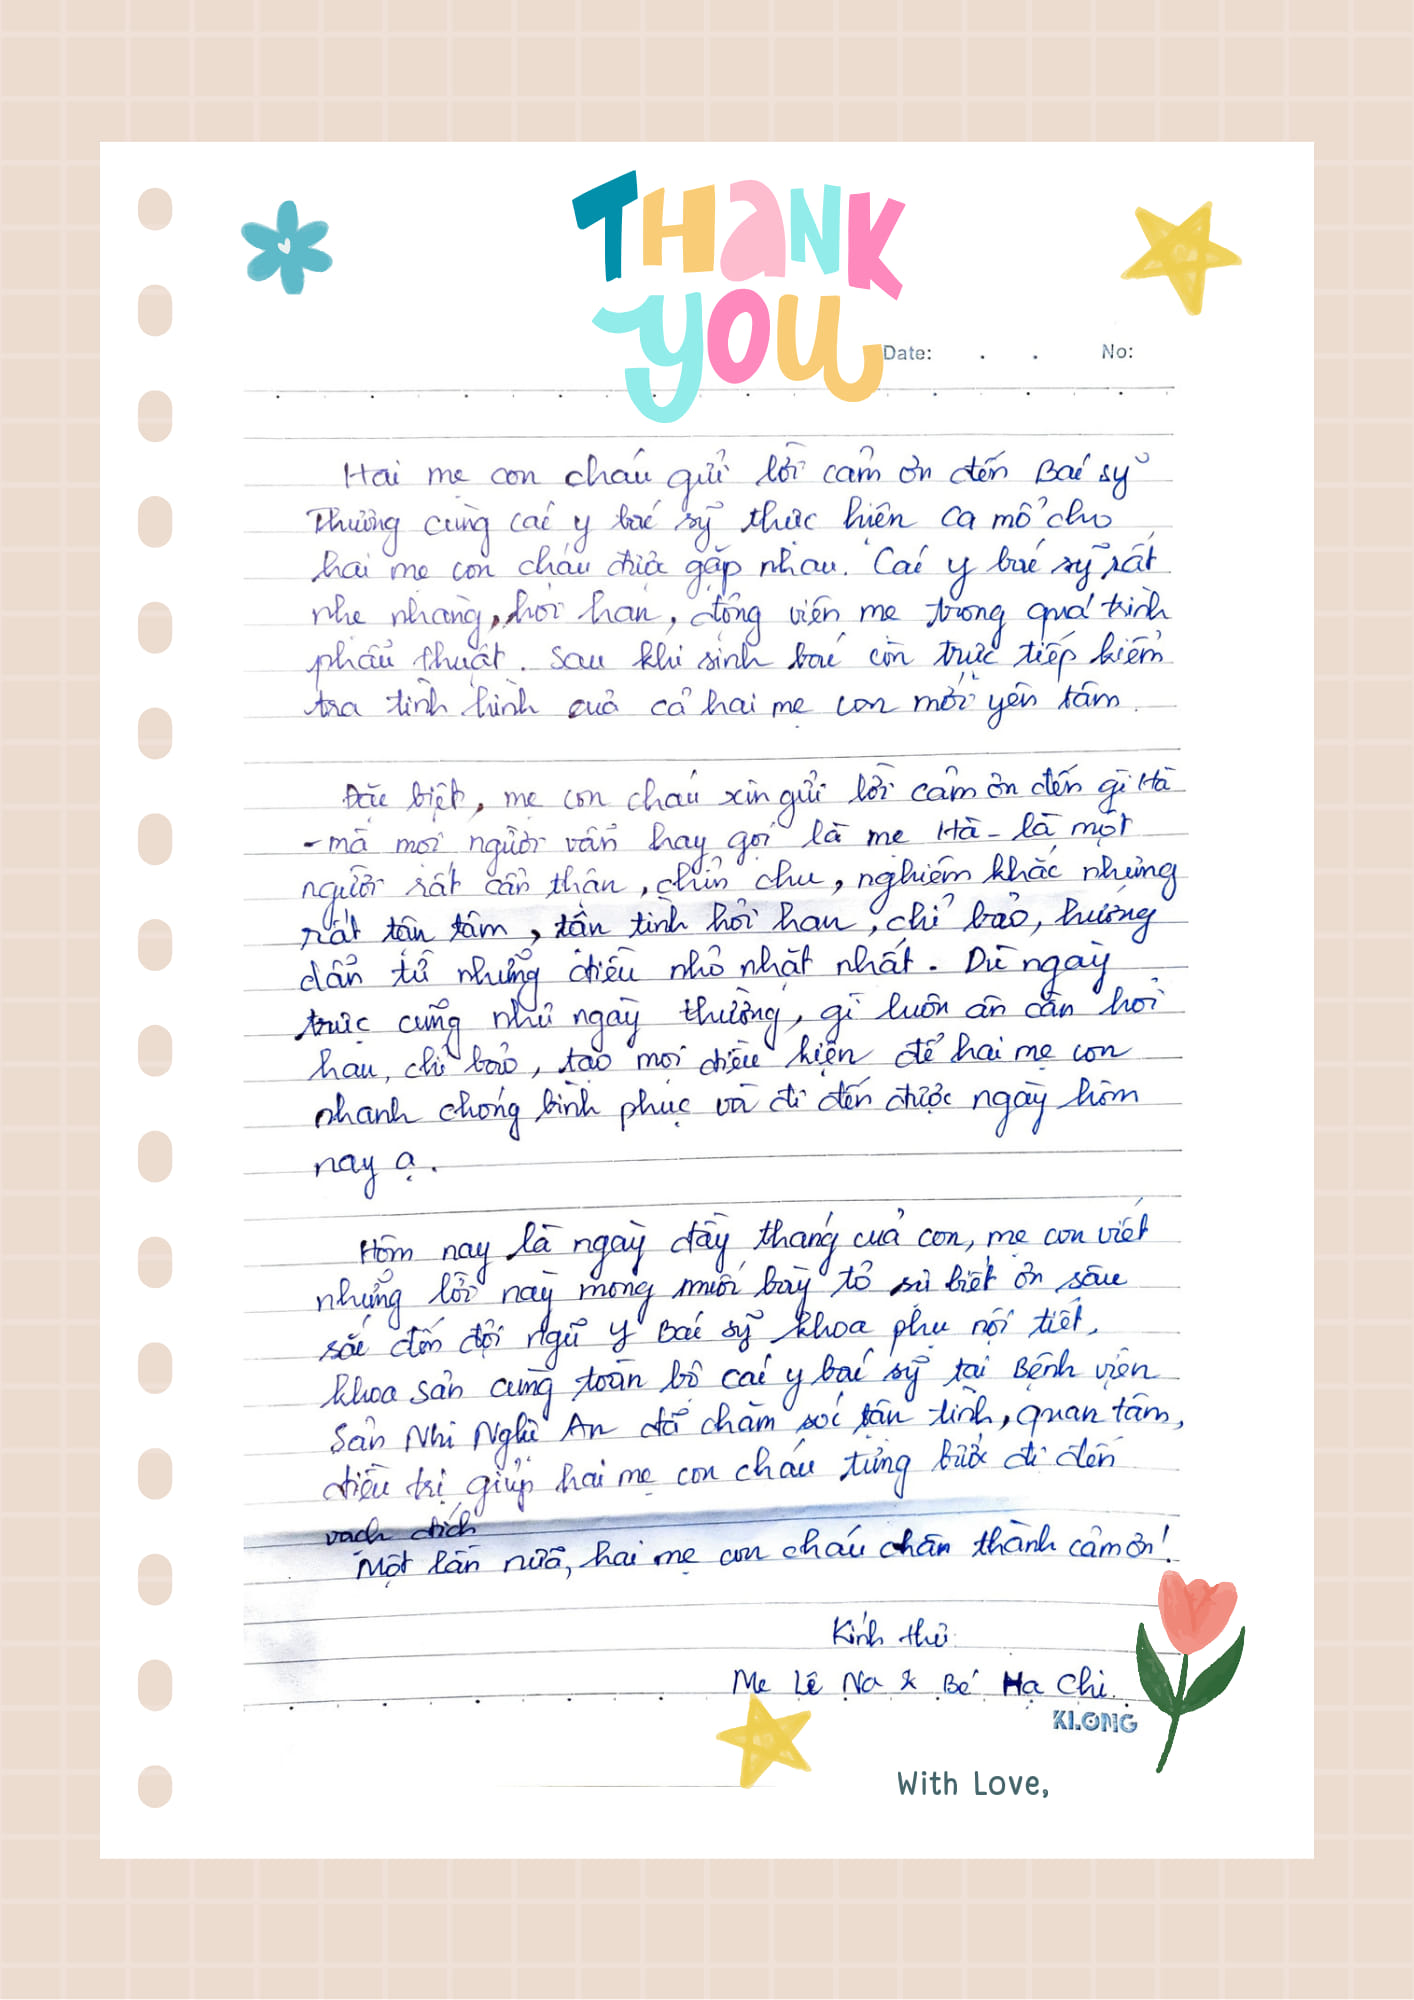 THANK
YOU
Date: . . No:
Hai mẹ con cháu gửi lời cảm ơn đến Bác sỹ
Thương cùng các y bác sỹ thực hiện ca mổ cho
hai mẹ con cháu được gặp nhau. Các y bác sỹ rất
nhẹ nhàng, hỏi han, động viên mẹ trong quá trình
phẫu thuật. Sau khi sinh bác còn trực tiếp kiểm
tra tình hình của cả hai mẹ con mới yên tâm.
Đặc biệt, mẹ con cháu xin gửi lời cảm ơn đến gì Hà
- mà mọi người vẫn hay gọi là mẹ Hà - là một
người rất cẩn thận, chỉn chu, nghiêm khắc nhưng
rất tận tâm, tận tình hỏi han, chỉ bảo, hướng
dẫn từ những điều nhỏ nhặt nhất. Dù ngày
trực cũng như ngày thường, gì luôn ân cần hỏi
han, chỉ bảo, tạo mọi điều kiện để hai mẹ con
nhanh chóng bình phục và đi đến được ngày hôm
nay ạ.
Hôm nay là ngày đầy tháng của con, mẹ con viết
những lời này mong muốn bày tỏ sự biết ơn sâu
sắc đến đội ngũ y Bác sỹ khoa phụ nội tiết,
khoa sản cùng toàn bộ các y bác sỹ tại Bệnh viện
Sản Nhi Nghệ An đã chăm sóc tận tình, quan tâm,
điều trị giúp hai mẹ con cháu từng bước đi đến
vạch đích
Một lần nữa, hai mẹ con cháu chân thành cảm ơn!
Kính thư
Mẹ Lê Na & Bé Hạ Chi.
KLONG
With Love,